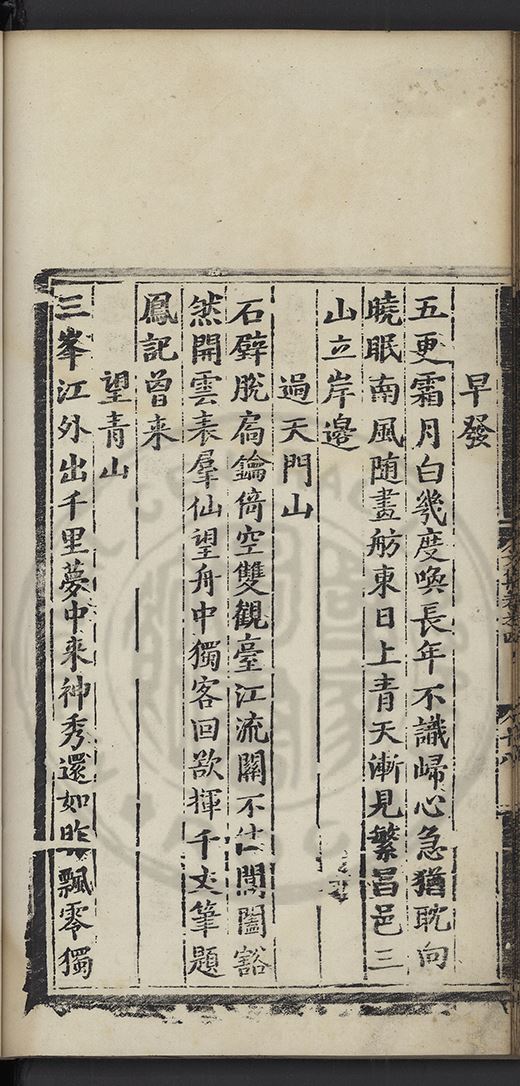 早發
五更霜月白幾度喚長年不識歸心急猶耽向
曉眠南風随畫舫東日上青天漸見繁昌邑三
山立岸邊
過天門山
石壁脫扄鑰倚空雙觀臺江流關不住閶闔豁
然開雲表羣仙望舟中獨客回欲揮千丈筆題
鳳記曾来
望青山
三峯江外出千里夢中来神秀還如昨飄零獨